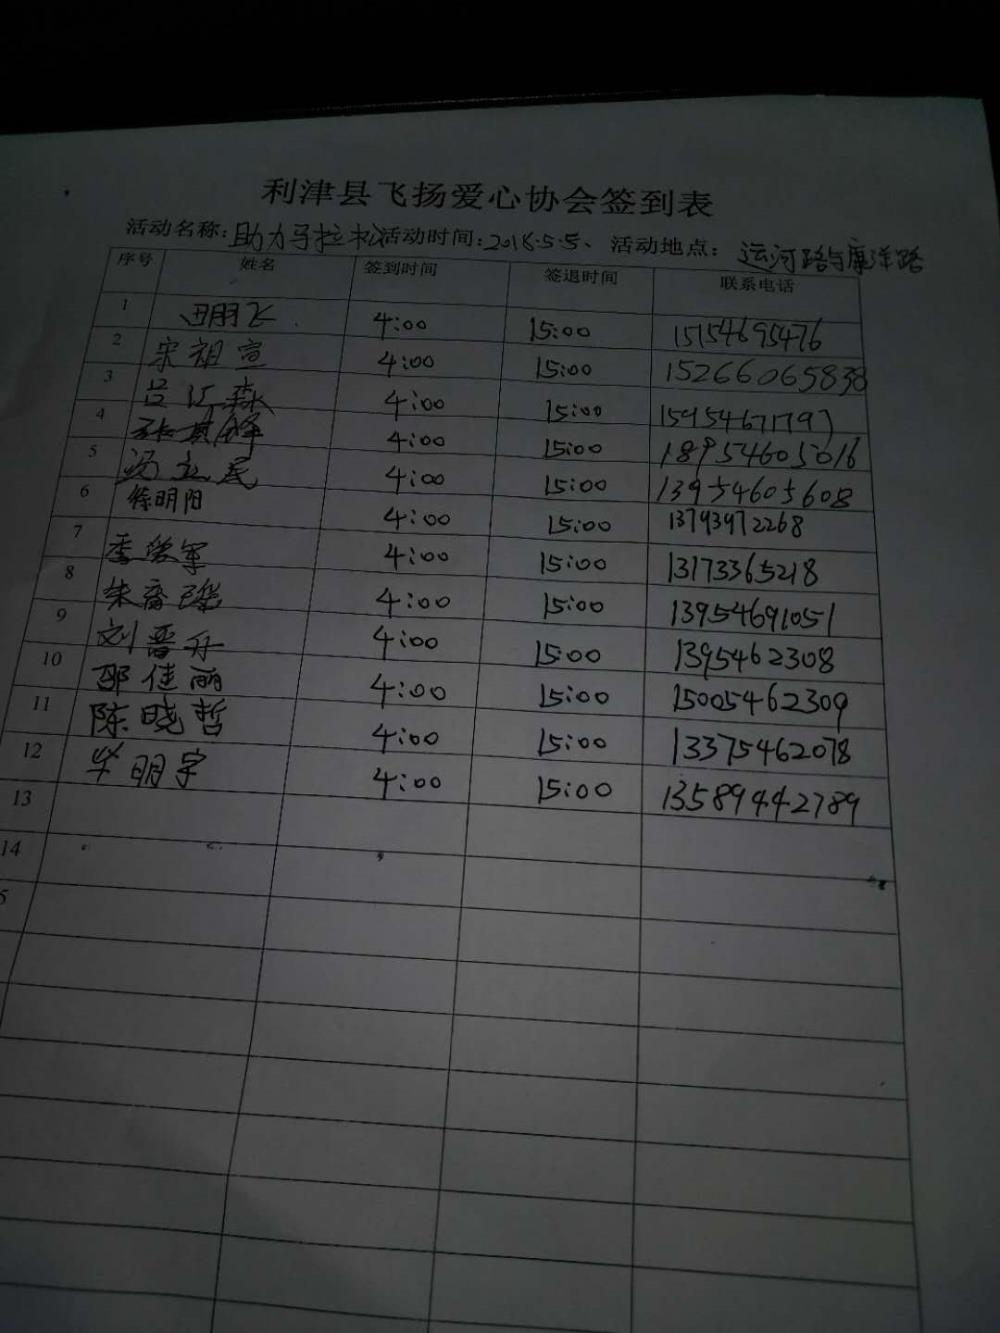 利津县飞扬爱心协会签到表
活动名称:助力马拉松活动时间:2018.5.5、活动地点:运河路与康洋路
序号 姓名 签到时间 签退时间 联系电话
1 田朋飞 4:00 15:00 15154695476
2 宋祖宣 4:00 15:00 15266065838
3 吕江森 4:00 15:00 15954671797
4 张其锋 4:00 15:00 18954605016
5 汤立民 4:00 15:00 13954605608
6 徐明阳 4:00 15:00 13793972268
7 李荣军 4:00 15:00 13173365218
8 朱裔 4:00 15:00 13954691051
9 刘晋升 4:00 15:00 1395462308
10 邵佳丽 4:00 15:00 15005462309
11 陈晓哲 4:00 15:00 13375462078
12 毕明宇 4:00 15:00 13589442789
13
14
5